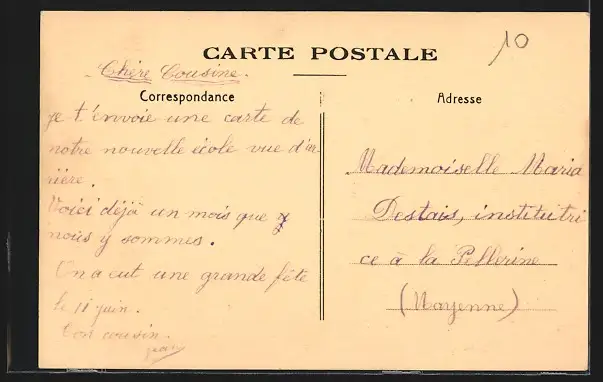 10
CARTE POSTALE
Chère Cousine.
Correspondance
je t'envoie une carte de
notre nouvelle école vue d'ar
rière.
Voici déjà un mois que
nous y sommes.
On a eut une grande fête
le 11 juin.
Ton cousin.
Adresse
Mademoiselle Maria
Destais, institutri
ce à la Pellerine
(Mayenne)